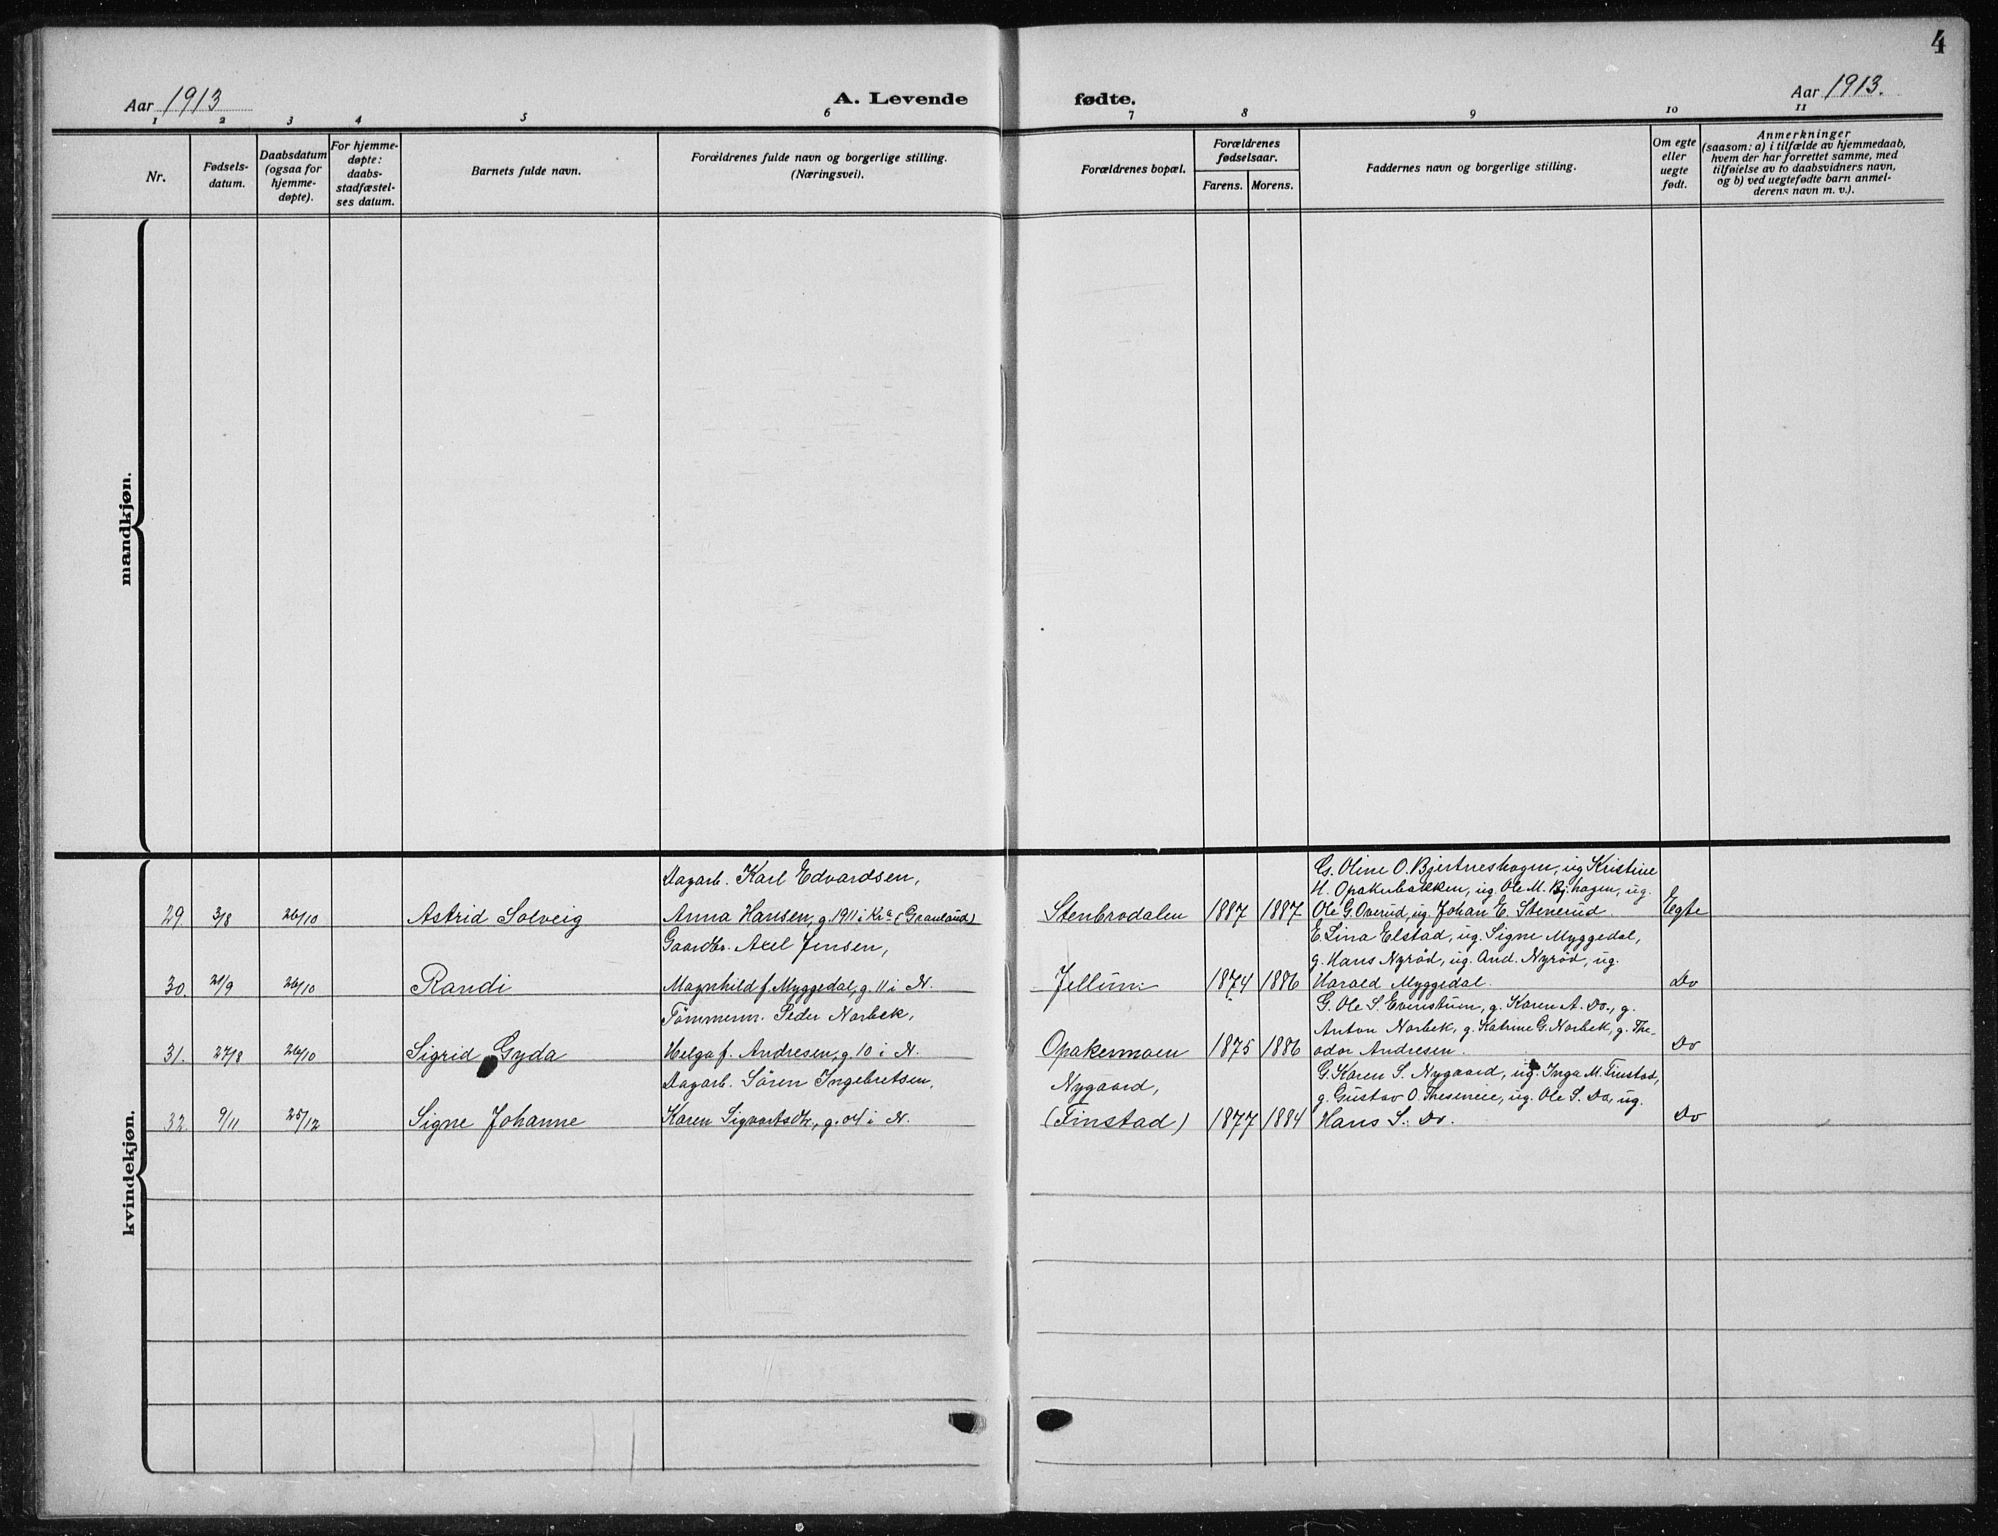 4
Aar 1913
A. Levende
fødte.
Aar 1913.
1 2 3 4 5 6 7 8 9 10 11
Nr.
Fødsels-
datum.
Daabsdatum
(ogsaa for
hjemme-
døpte).
For hjemme-
døpte:
daabs-
stadfæstel-
ses datum.
Barnets fulde navn.
Forældrenes fulde navn og borgerlige stilling.
(Næringsvei).
Forældrenes bopæl.
Forældrenes
fødselsaar.
Farens. Morens.
Faddernes navn og borgerlige stilling.
Om egte
eller
uegte
født.
Anmerkninger
(saasom: a) i tilfælde av hjemmedaab,
hvem der har forrettet samme, med
tilføielse av to daabsvidners navn,
og b) ved uegtefødte barn anmel-
derens navn m. v.).
mandkjøn.
kvindekjøn.
Dagarb. Karl Edvardsen,
G. Oline O. Bjertneshagen, ug Kristine
H. Opakerbakken, ug. Ole M. Bj.hagen, ug.
29. 3/8 26/10 Astrid Solveig Anna Hansen, g. 1911 i Kr.a (Granlund) Stenbrodalen 1887 1887 Ole G. Overud, ug. Johan E. Stenerud. Egte
Gaardbr. Axel Jensen,
E. Lina Elstad, ug. Signe Myggedal,
g. Hans Nyrød, ug. And. Nyrød, ug.
30. 21/9 26/10 Randi Magnhild f. Myggedal, g. 11 i N. Jellum: 1874 1886 Harald Myggedal. Do
Tømmerm. Peder Norbek,
G. Ole S. Evenstum, g. Karen A. Do., g.
Anton Norbek, g. Katrine G. Norbek, g. The-
31. 27/8 26/10 Sigrid Gyda Helga f. Andresen, g. 10 i N. Opakermoen 1875 1886 odor Andresen. Do
Dagarb. Søren Ingebretsen,
Nygaard,
G. Karen S. Nygaard, ug. Inga M. Finstad,
g. Gustav O. Theseneie, ug. Ole S. Do, ug.
32 9/11 25/12 Signe Johanne Karen Sigvartsdtr., g. 04 i N. (Finstad) 1877 1884 Hans S. Do. Do